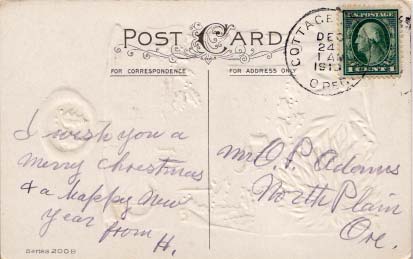 POST CARD
FOR CORRESPONDENCE
FOR ADDRESS ONLY
COTTAGE
DEC
24
1 AM
U.S. POSTAGE
1 CENT 1
I wish you a
merry christmas
& a Happy New
Year
from H.
Mr O. P. Adams
North Plain
Ore.
Series 200 B